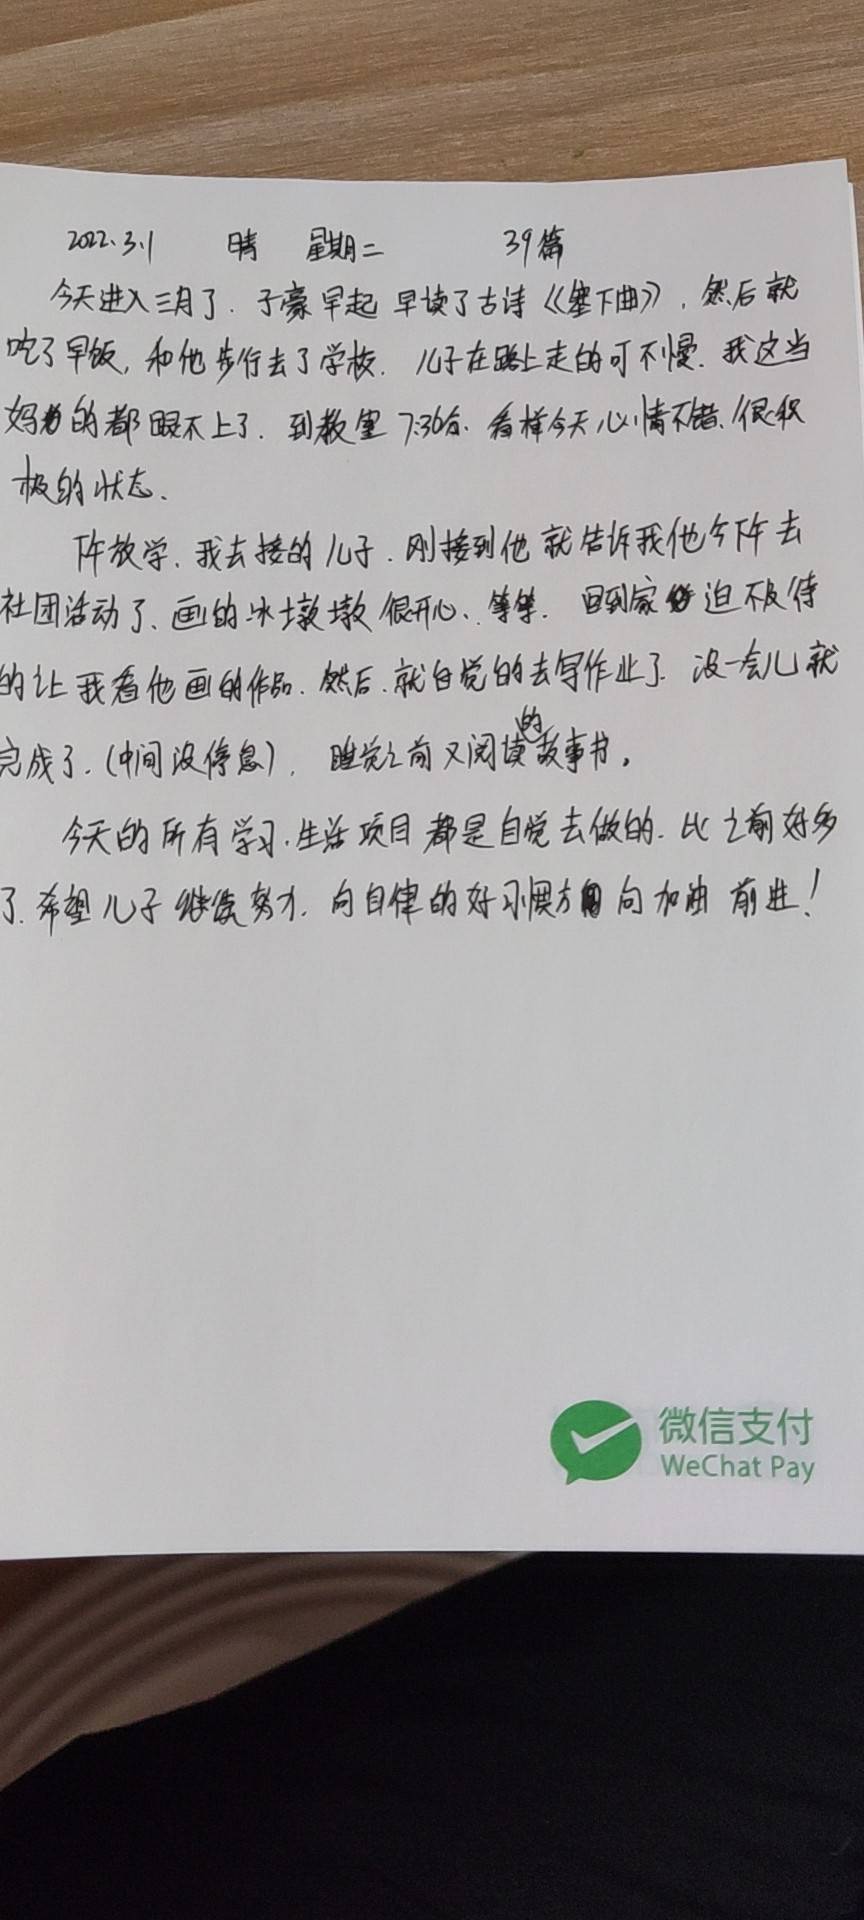 2022.3.1 晴 星期二 39篇
今天进入三月了.子豪早起 早读了古诗《塞下曲》,然后就
吃了早饭,和他步行去了学校.儿子在路上走的可不慢.我这当
妈的都跟不上了.到教室7:36分.看样今天心情不错、很积
极的状态、
下午放学、我去接的儿子.刚接到他就告诉我他今下午去
社团活动了、画的冰墩墩很开心、等等.回到家迫不及待
的让我看他画的作品.然后.就自觉的去写作业了.没一会儿就
完成了.(中间没停息).睡觉之前又阅读的故事书。
今天的所有学习.生活项目都是自觉去做的.比之前好多
了.希望儿子继续努力.向自律的好习惯方向加油前进!
微信支付
WeChat Pay